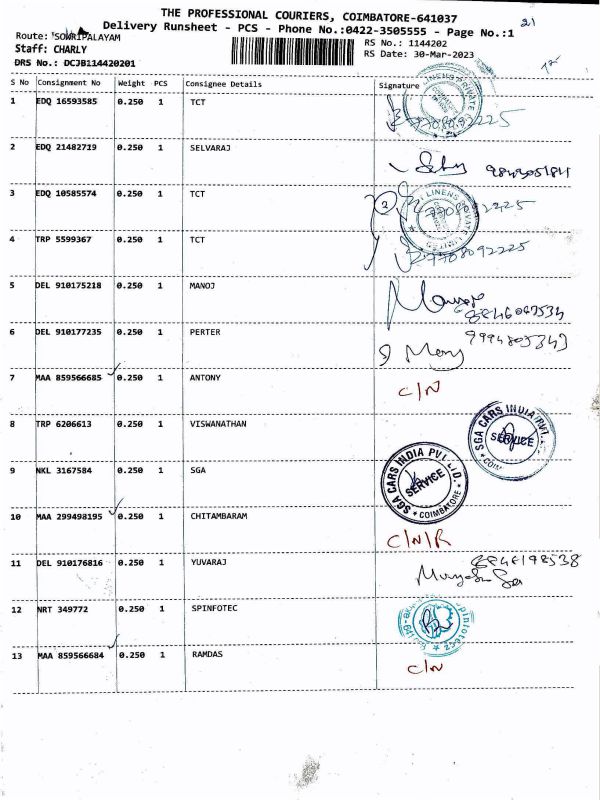 THE PROFESSIONAL COURIERS, COIMBATORE-641037
21
Delivery Runsheet - PCS - Phone No.:0422-3505555 - Page No.:1
Route: SOWRIPALAYAM
RS No.: 1144202
Staff: CHARLY
RS Date: 30-Mar-2023
DRS No.: DCJB114420201
S No Consignment No Weight PCS Consignee Details Signature
1 EDQ 16593585 0.250 1 TCT LINENS PRIVATE 7708092225
2 EDQ 21482719 0.250 1 SELVARAJ
3 EDQ 10585574 0.250 1 TCT LINENS PRIVATE LIMITED 7708092225
4 TRP 5599367 0.250 1 TCT 7708092225
5 DEL 910175218 0.250 1 MANOJ
6 DEL 910177235 0.250 1 PERTER
7 MAA 859566685 0.250 1 ANTONY C/N
8 TRP 6206613 0.250 1 VISWANATHAN SGA CARS INDIA PVT. SERVICE COIM
9 NKL 3167584 0.250 1 SGA SGA CARS INDIA PVT LTD. SERVICE COIMBATORE
10 MAA 299498195 0.250 1 CHITAMBARAM C/N/R
11 DEL 910176816 0.250 1 YUVARAJ
12 NRT 349772 0.250 1 SPINFOTEC
13 MAA 859566684 0.250 1 RAMDAS C/N